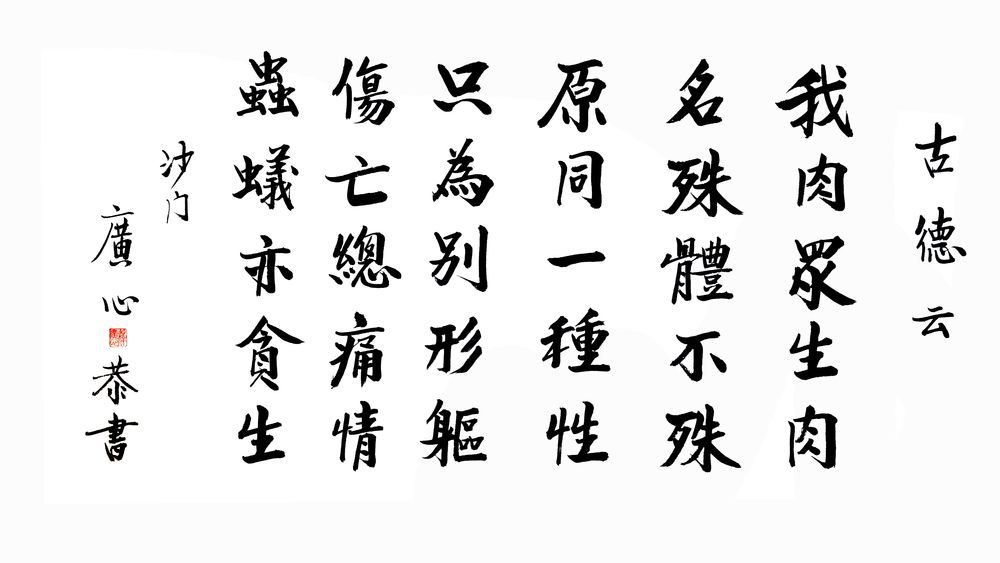 古德云
我肉眾生肉
名殊體不殊
原同一種性
只為別形軀
傷亡總痛情
蟲蟻亦貪生
沙门
廣心恭書